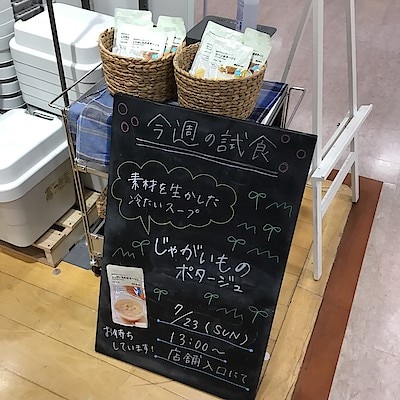 今週の試食
素材を生かした
冷たいスープ
じゃがいもの
ポタージュ
7/23(SUN)
13:00〜
店舗入口にて
お待ち
しています!